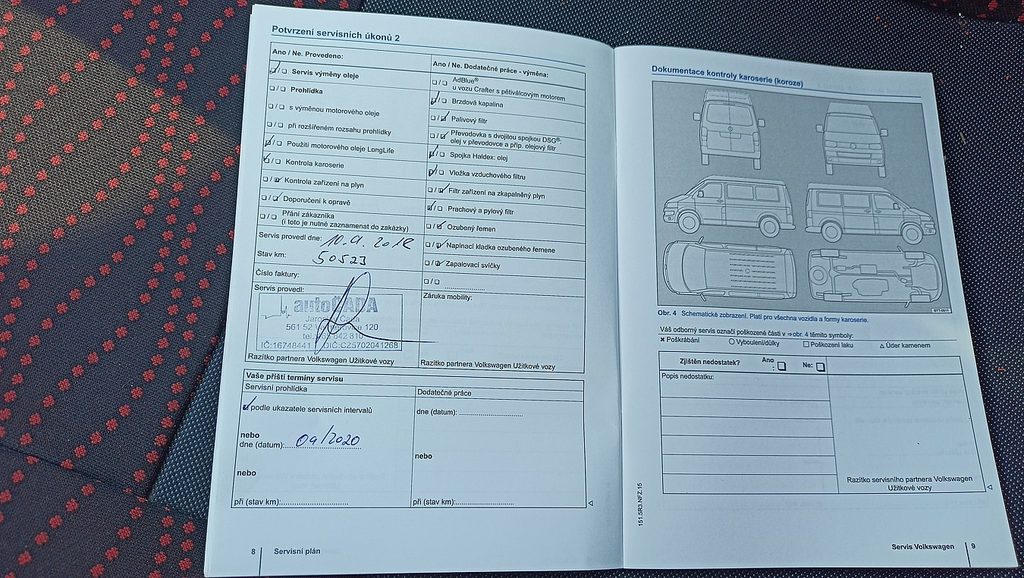 Potvrzení servisních úkonů 2
Ano / Ne. Provedeno:
Servis výměny oleje
Prohlídka
s výměnou motorového oleje
při rozšířeném rozsahu prohlídky
Použití motorového oleje LongLife
Kontrola karoserie
Kontrola zařízení na plyn
Doporučení k opravě
Přání zákazníka
(i toto je nutné zaznamenat do zakázky)
Servis provedl dne:
Stav km: 50523
Číslo faktury:
Servis provedl:
autoČADA
561 52
120
IČ:16748441 DIČ:CZ5702041268
Razítko partnera Volkswagen Užitkové vozy
Ano / Ne. Dodatečné práce - výměna:
AdBlue®
u vozu Crafter s pětiválcovým motorem
Brzdová kapalina
Palivový filtr
Převodovka s dvojitou spojkou DSG®:
olej v převodovce a příp. olejový filtr
Spojka Haldex: olej
Vložka vzduchového filtru
Filtr zařízení na zkapalněný plyn
Prachový a pylový filtr
Ozubený řemen
Napínací kladka ozubeného řemene
Zapalovací svíčky
Záruka mobility:
Razítko partnera Volkswagen Užitkové vozy
Vaše příští termíny servisu
Servisní prohlídka
podle ukazatele servisních intervalů
nebo
dne (datum): 09/2020
nebo
při (stav km):
Dodatečné práce
dne (datum):
nebo
při (stav km):
8 Servisní plán
Dokumentace kontroly karoserie (koroze)
Obr. 4 Schematické zobrazení. Platí pro všechna vozidla a formy karoserie.
Váš odborný servis označí poškozené části v ⇒ obr. 4 těmito symboly:
× Poškrábání ○ Vyboulení/důlky □ Poškození laku △ Úder kamenem
Zjištěn nedostatek? Ano : Ne:
Popis nedostatku:
Razítko servisního partnera Volkswagen
Užitkové vozy
151.5R3.NFZ.15
Servis Volkswagen 9